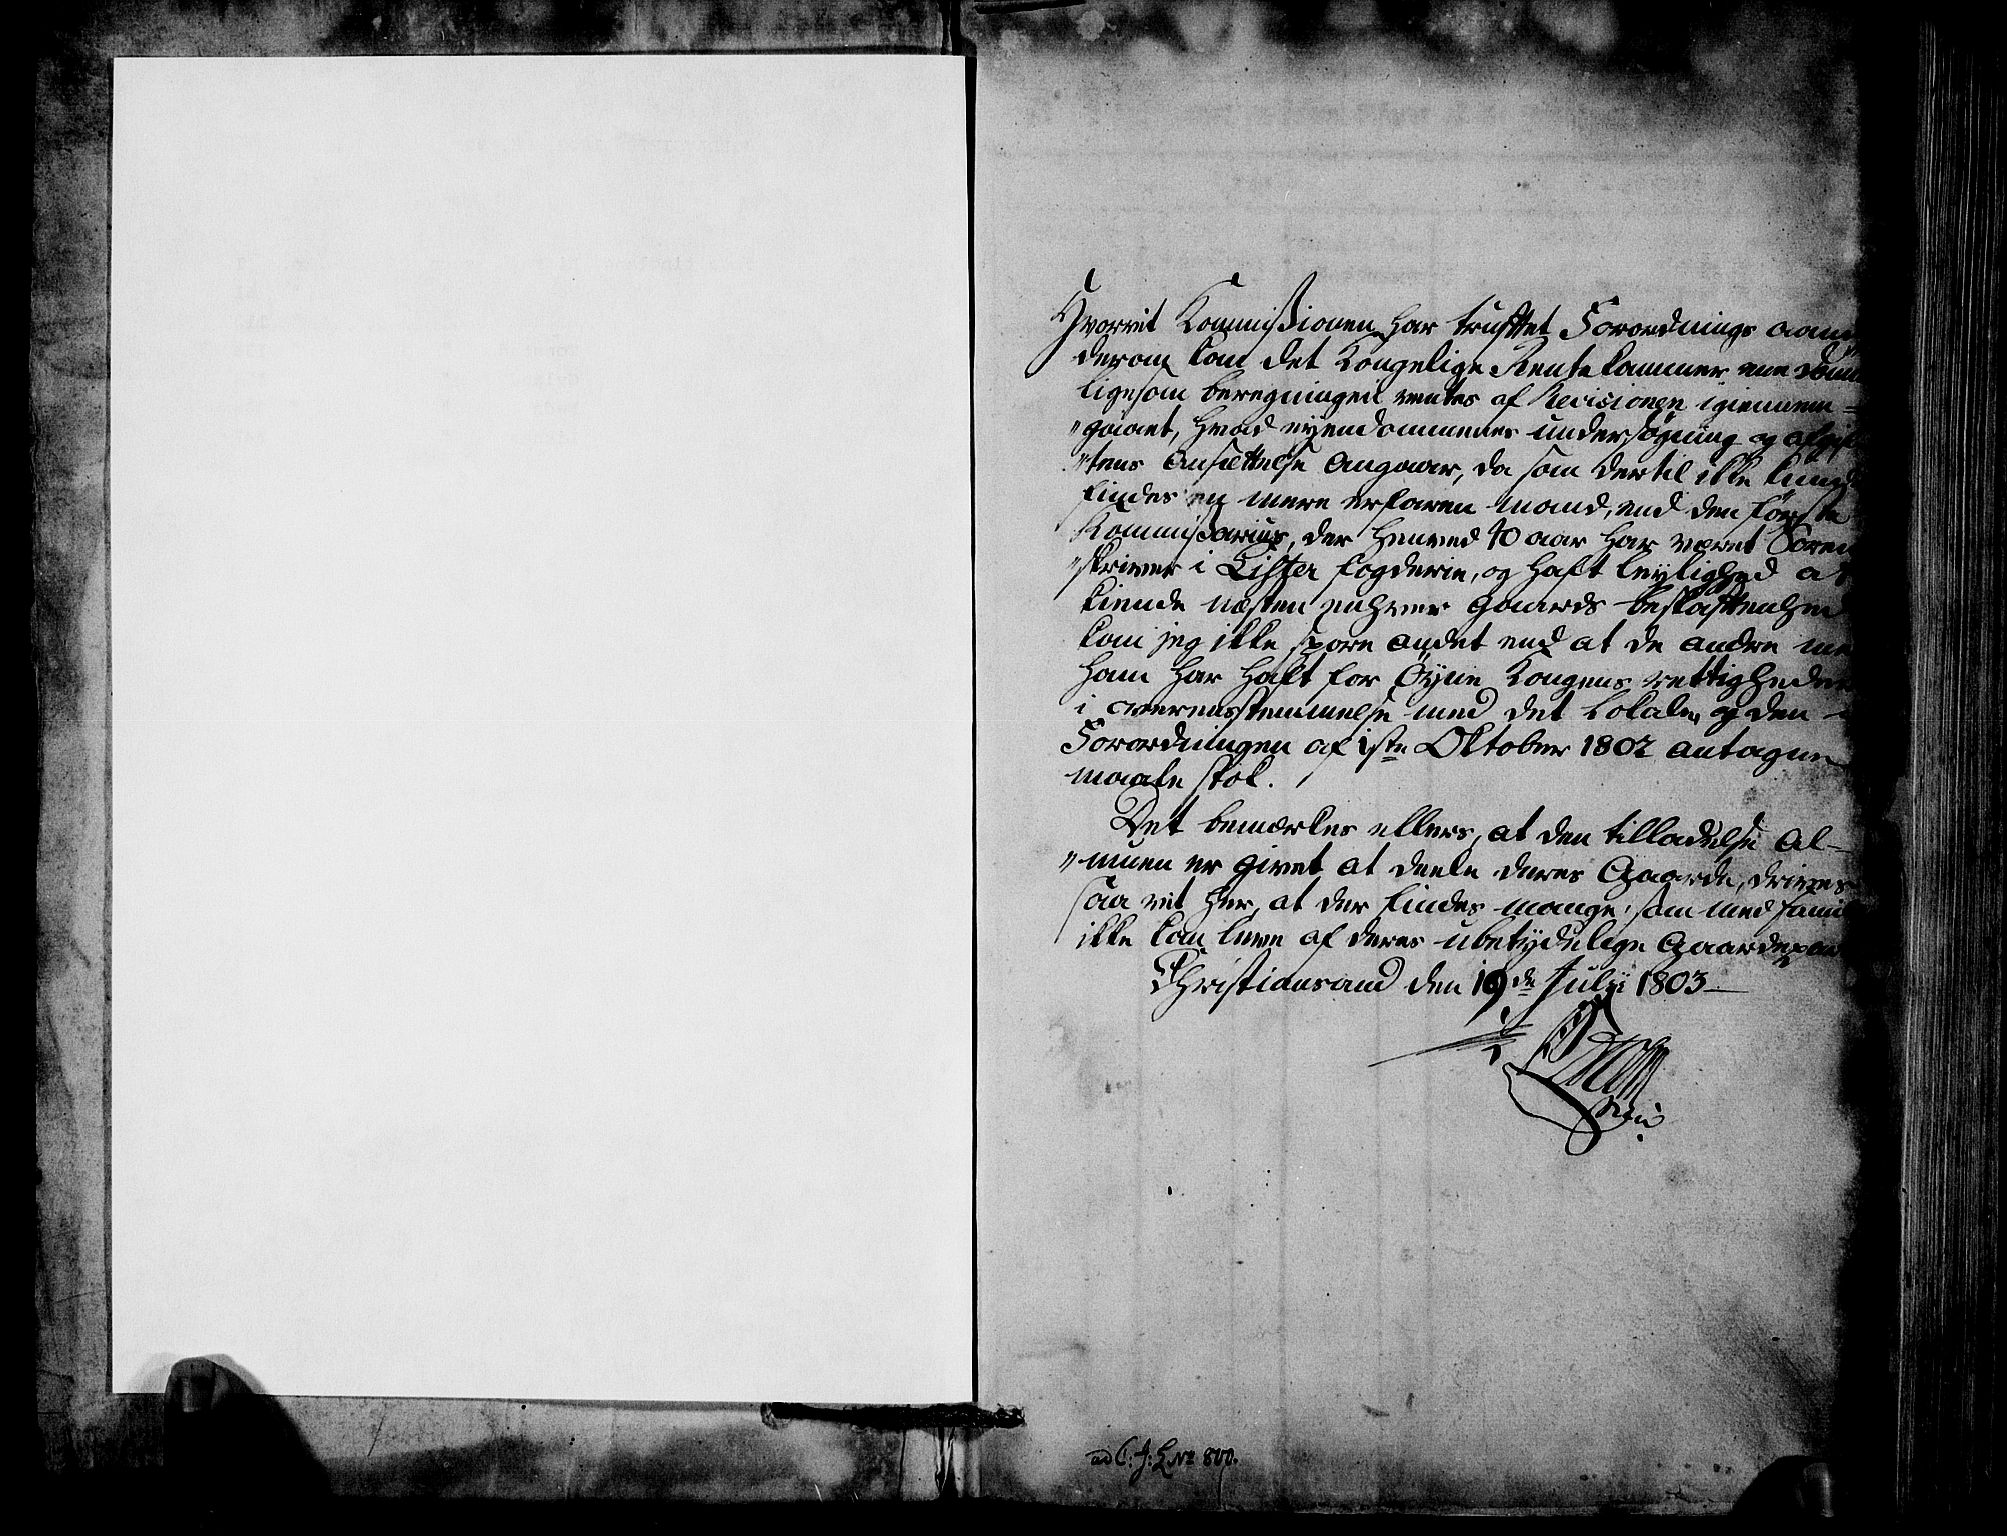 Hvorvit Kommissionen har truffet Forordnings
derom kan det Kongelige Rentekammer ene
ligesom beregningen ventes af Revisionen igiennem=
"gaaet, hvad eyendommenes undersøgning og afgif
"tens Ansættelse angaar, da som dertil ikke kunde
findes en mere erfaren mand, end den første
Kommissarius, der henved 40 aar har været Soren
"skriver i Lister fogderie, og haft leylighed at
kiende næsten enhver gaards beskaffenhed
kan jeg ikke spore andet end at de andre me
ham har haft for Øyne Kongens rettigheder
i overensstemmelse med det lokale, og den i
Forordningen af 1ste Oktober 1802 antagne
maale stok.
Det bemærkes ellers, at den tilladelse Al-
"muen er givet at deele deres Gaarde, drives
saa vit her, at der findes mange, som med famil
ikke kan leve af deres ubetydelige Gaarde
Christiansand den 19de Julii 1803
ad C: J: L No 800.